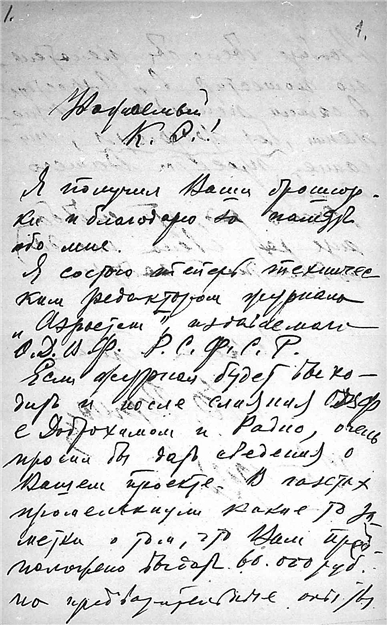 1.
1.
Уважаемый
К. Э.!
Я получил Ваши брошюр-
ки и благодарю за память
обо мне
Я состою теперь техничес-
ким редактором журнала
"Аэростат", издаваемого
О.Д.В.Ф. Р.С.Ф.С.Р.
Если журнал будет выхо-
дить и после слияния ОДВФ
с Доброхимом и Радио, очень
просил бы дать сведения о
Вашем проекте. В газетах
промелькнули какие то за-
метки о том, что Вам пред-
положено выдать 60.000 руб.
на предварительные опыты